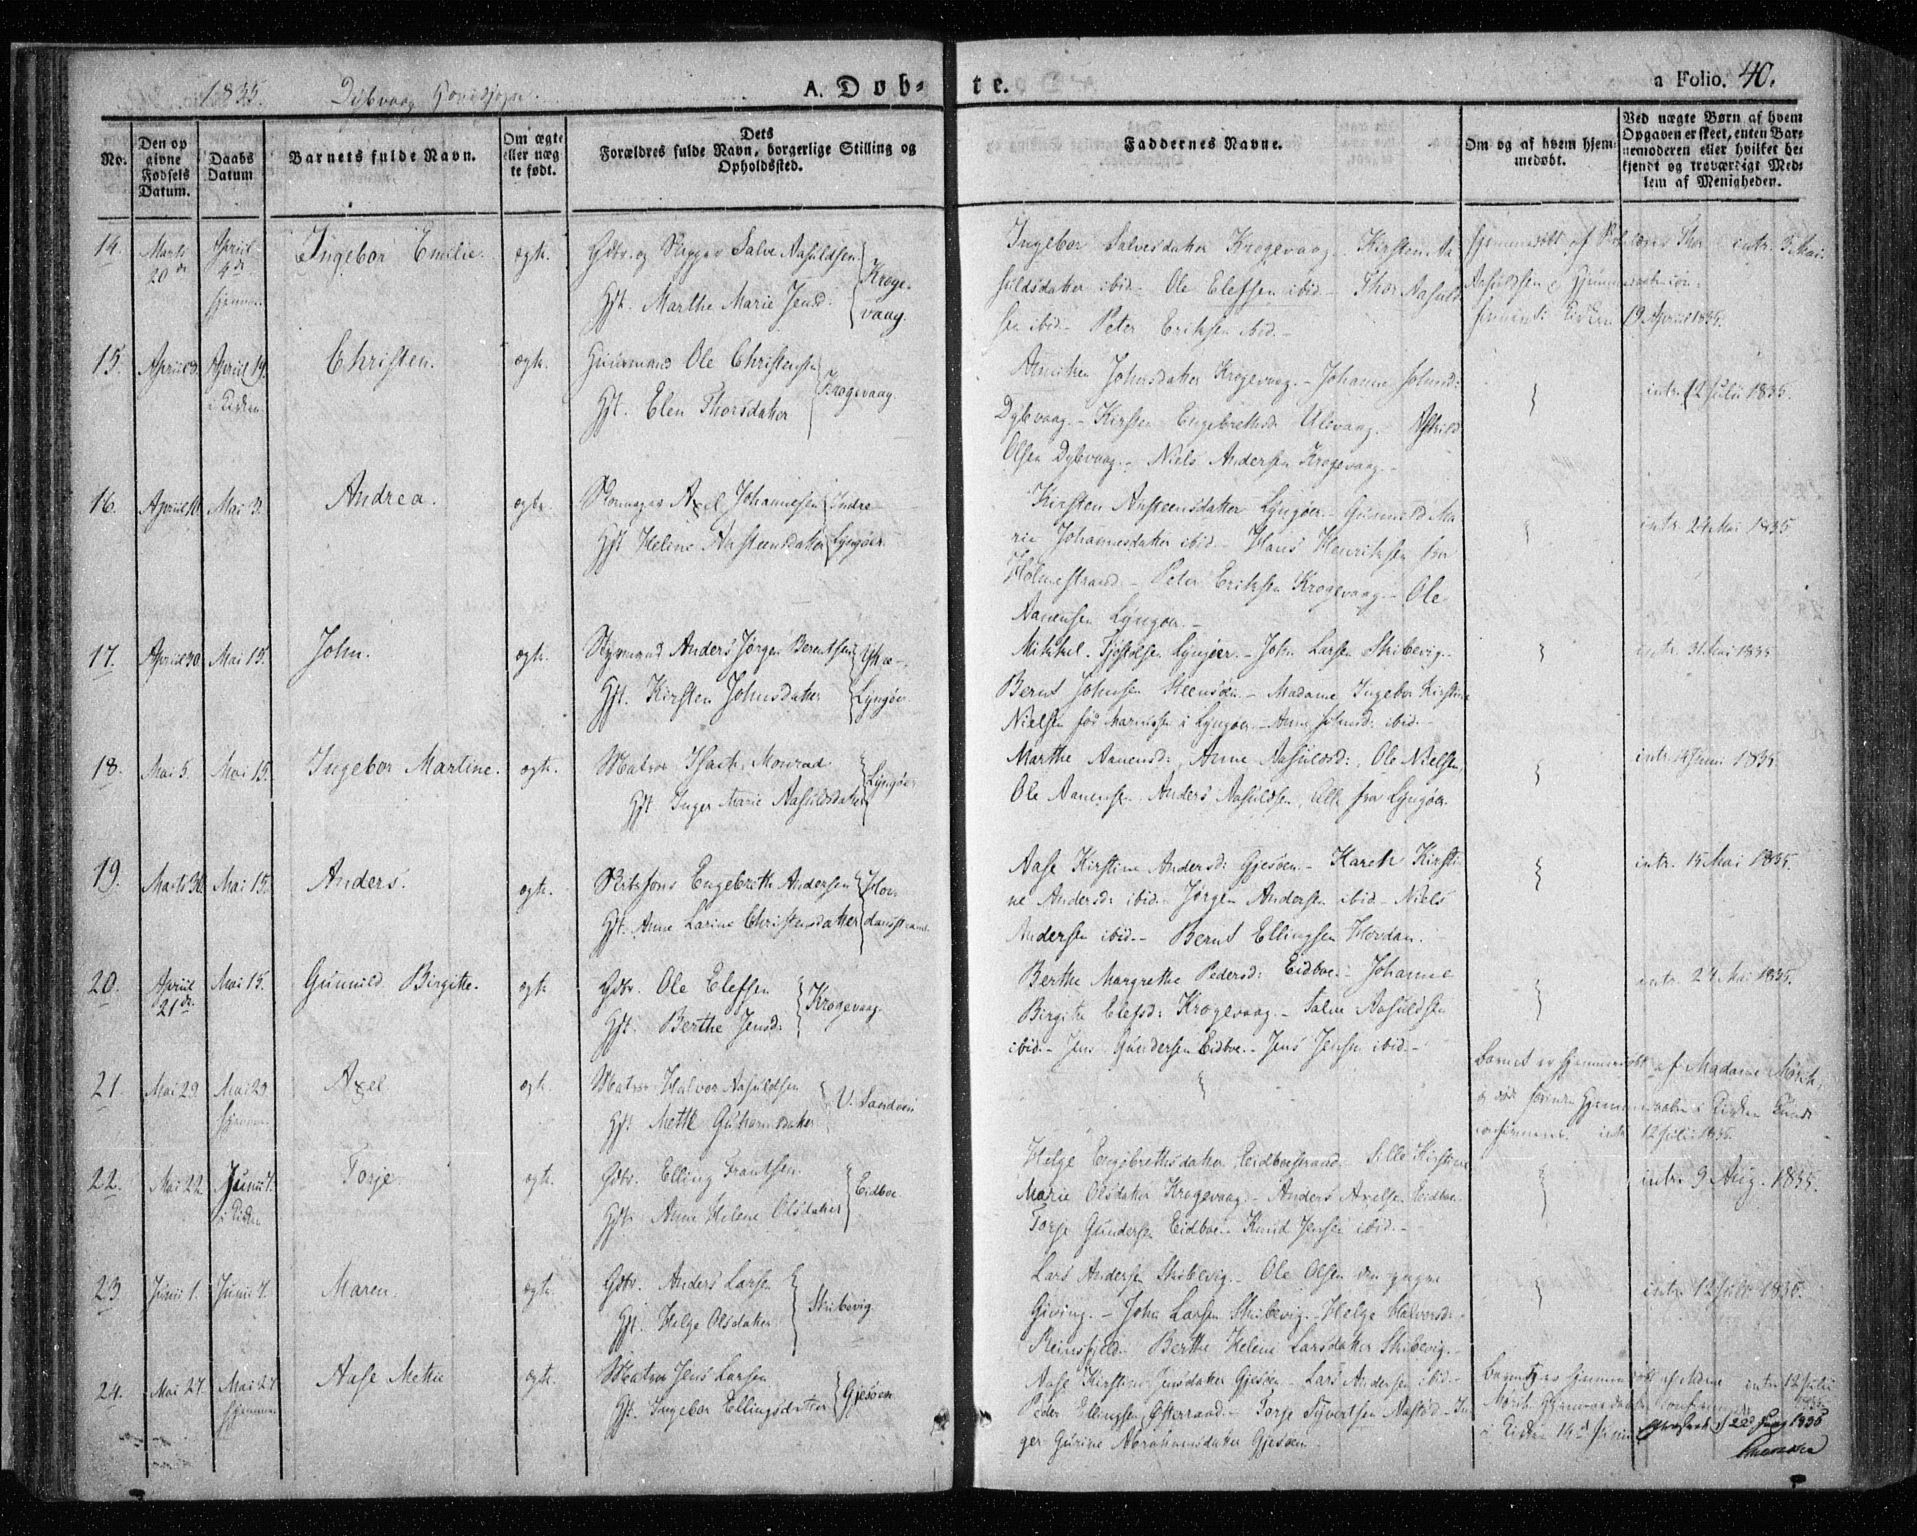 1835. Dybvaag Hovedsogn.
A. Døb-
te.
a Folio. 40.
No.
Den op
givne
Fødsels
Datum.
Daabs
Datum
Barnets fulde Navn.
Om ægte
eller næg
te født.
Dets
Forældres fulde Navn, borgerlige Stilling og
Opholdssted.
Faddernes Navne.
Om og af hvem hjem-
medøbt.
Ved uægte Børn af hvem
Opgaven er skeet, enten Bar-
nemoderen eller hvilket be-
kjendt og troværdigt Med-
lem af Menigheden.
14. Marts 20de April 4de hjemme Ingebor Emilie. ægte. Gdbr. og Skipper Salve Aasuldsen
Hst. Marthe Marie Jensd. Krogevaag.
Ingebor Salvesdatter Krogevaag. Kirsten Aa
suldsdatter ibid - Ole Elefsen ibid - Thor Aasuld
sen ibid - Peter Eriksen ibid -
hjemmedøbt af Thor Aasuldsen
i Kirken 19 April 1835.
intr. 3 Mai.
15. April 3. April 19. i Kirken Christen. ægte. Huusmand Ole Christensen
Hst. Elen Thorsdatter Krogevaag.
Anichen Johnsdatter Krogevaag. - Johanne Johnsd:
Dybvaag. - Kirsten Engebrethsd: Ulevaag.
Olsen Dybvaag. - Niels Andersen Krogevaag. -
intr. 12 Julii 1835.
16. April Mai 3. Andrea. ægte. Axel Johannesen
Hst. Helene Aasteensdatter Indre Lyngøer.
Kirsten Aasteensdatter Lyngøer - Gunnild Ma
rie Johannesdatter ibid - Hans Henriksen fra
Holmestrand - Peter Eriksen Krogevaag - Ole
Aanensen Lyngøer. -
intr. 24 Mai 1835
17. April 30. Mai 15. John. ægte. Styrmand Anders Jørgen Berntsen
Hst. Kirsten Johnsdatter Lyngør
Mikkel Lyngøer. - John Larsen Skibevig. -
Bernt Johnsen Steensøen - Madame Ingebor Kirstine
Nielsen fød i Lyngøer - Anne Johnsd: ibid. -
intr. 31 Mai 1835
18. Mai 5. Mai 15. Ingebor Martine. ægte. Matros Isach Monrad
Hst. Inger Marie Aasuldsdatter Lyngøer
Marthe Aanensd:, Anne Aasuldsd:, Ole Nielsen,
Ole Aanensen, Anders Aasuldsen, Alle fra Lyngøer.
intr. 14 Junii 1835
19. Marts 30. Mai 15. Anders. ægte. Engebreth Andersen
Hst. Anne Larine Christensdatter
Aase Kirstine Andersd: Gjesøen - Karen Kirsti
ne Andersd: ibid - Jørgen Andersen ibid - Niels
Andersen ibid - Bernt Ellingsen Hovdan.
intr. 15 Mai 1835.
20. April 21de Mai 15. Gunnild Birgitte. ægte. Gdbr. Ole Elefsen
Hst. Berthe Jensd: Krogevaag
Berthe Margrethe Pedersd: Eidboe. - Johanne
Birgitte Elefsd: Krogevaag. - Salve Aasuldsen
ibid. - Jens Gundersen Eidboe. - Jens Jensen ibid. -
intr. 24 Mai 1835.
21. Mai 29. Mai 29 hjemme Axel ægte Matros Halvor Aasuldsen
Hst. Mette Gutormsdatter
Barnet er hjemmedøbt af Madame Mørch,
og døde forinden
intr 12 Julii 1835.
22. Mai 22. Junii 7. i Kirken Torje ægte. Gdbr. Elling Frantsen
Hst. Anne Helene Olsdatter Eidboe
Helge Engebrethsdatter Eidboestrand. Sille Kirstine
Marie Olsdatter Krogevaag - Anders Axelsen Eidboe.
Torje Gundersen Eidboe - Knud Jensen ibid. -
intr. 9 Aug. 1835.
23. Junii 1. Junii 7. Maren. ægte. Gdbr. Anders Larsen
Hst. Helge Olsdatter Skibevig
Lars Andersen Skibevig. - Ole Olsen den yngre
Giving. - John Larsen Skibevig. - Helge Halvorsd:
Reinsfjeld - Berthe Helene Larsdatter Skibevig. -
intr. 12 Julii 1835.
24. Mai 27. Mai 27 hjemme Aase Mette ægte. Matros Jens Larsen
Hst. Ingebor Ellingsdatter Gjesøen
Aase Kirstine Jensdatter Gjesøen - Lars Andersen ibid -
Peder Ellingsen Østeraad - Torje Syvertsen - In
ger Gurine Abrahamsdatter Gjesøen
Barnet er hjemmedøbt af Mdme
Mørch
i Kirken 14de Junii
intr 12 Julii
1835